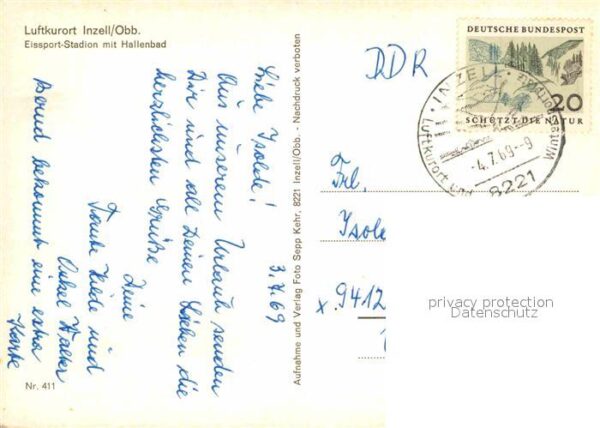 Luftkurort Inzell/Obb.
Eissport-Stadion mit Hallenbad
3.7.69
Liebe Isolde!
Aus unserem Urlaub senden
Dir und all Deinen Lieben die
herzlichsten Grüße
Deine
Tante Hilde und
Onkel Walter
Bernd bekommt eine extra
Karte
Nr. 411
Aufnahme und Verlag Foto Sepp Kehr, 8221 Inzell/Obb. - Nachdruck verboten
DDR
DEUTSCHE BUNDESPOST
20
SCHÜTZT DIE NATUR
INZELL
Luftkurort und
Wintersport
-4.7.69--9
8221
Frl.
Isol
x. 9412
privacy protection
Datenschutz